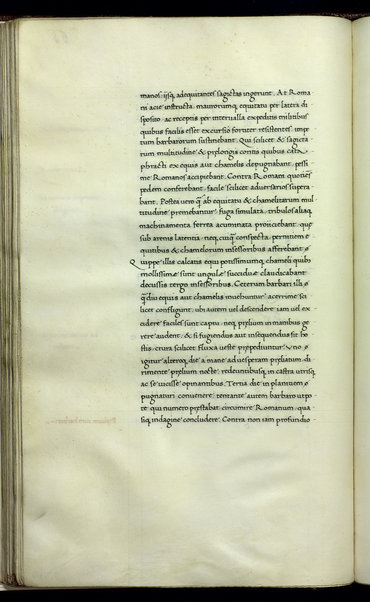 manos: ijsq, adequitantes sagittas ingerunt. At Roma
ni acie instructa: maurorumq, equitatu per latera di
sposito: ac receptis per intervalla expeditis militibus
quibus facilis esset excursio fortiter resistentes: impe
tum barbarorum sustinebant. Qui scilicet & sagitta
rum multitudine: & prelongis contis quibus cata
phracti ex equis aut chamelis depugnabant: pessi
me Romanos accipiebant. Contra Romani quoties
pedem conferebant: facile scilicet adversarios supera
bant. Postea vero q ab equitatu & chamelitarum mul
titudine premebantur: fuga simulata: tribulos aliaq,
machinamenta ferrea acuminata proiiciebant: que
sub arenis latentia: neq, cuiq conspecta: perniciem e
quitibus & chamelorum insessoribus afferebant.
Quippe illis calcatis equi potissimumq, chameli quibus
mollissimae sunt ungulae succiduae claudicabant:
decussis tergo insessoribus. Ceterum barbari illi
q diu equis aut chamelis invehuntur: acerrime sci
licet confligunt: ubi autem vel descendere iam vel ex
cidere: faciles sunt captu: neq, prelium in manibus ge
rere audent: & si fugiendus aut insequendus sit ho
stis: crura scilicet fluxa veste prepediuntur. Uno
igitur alteroq, die a mane ad vesperam preliatum: di
rimente prelium nocte: redeuntibusq, in castra utrisq,
ac se vicisse opinantibus. Tertia die in planitiem
pugnaturi convenere: tentante autem barbaro utpo
te qui numero prestabat: circumire Romanum: qua
siq, indagine concludere: Contra non iam profundio